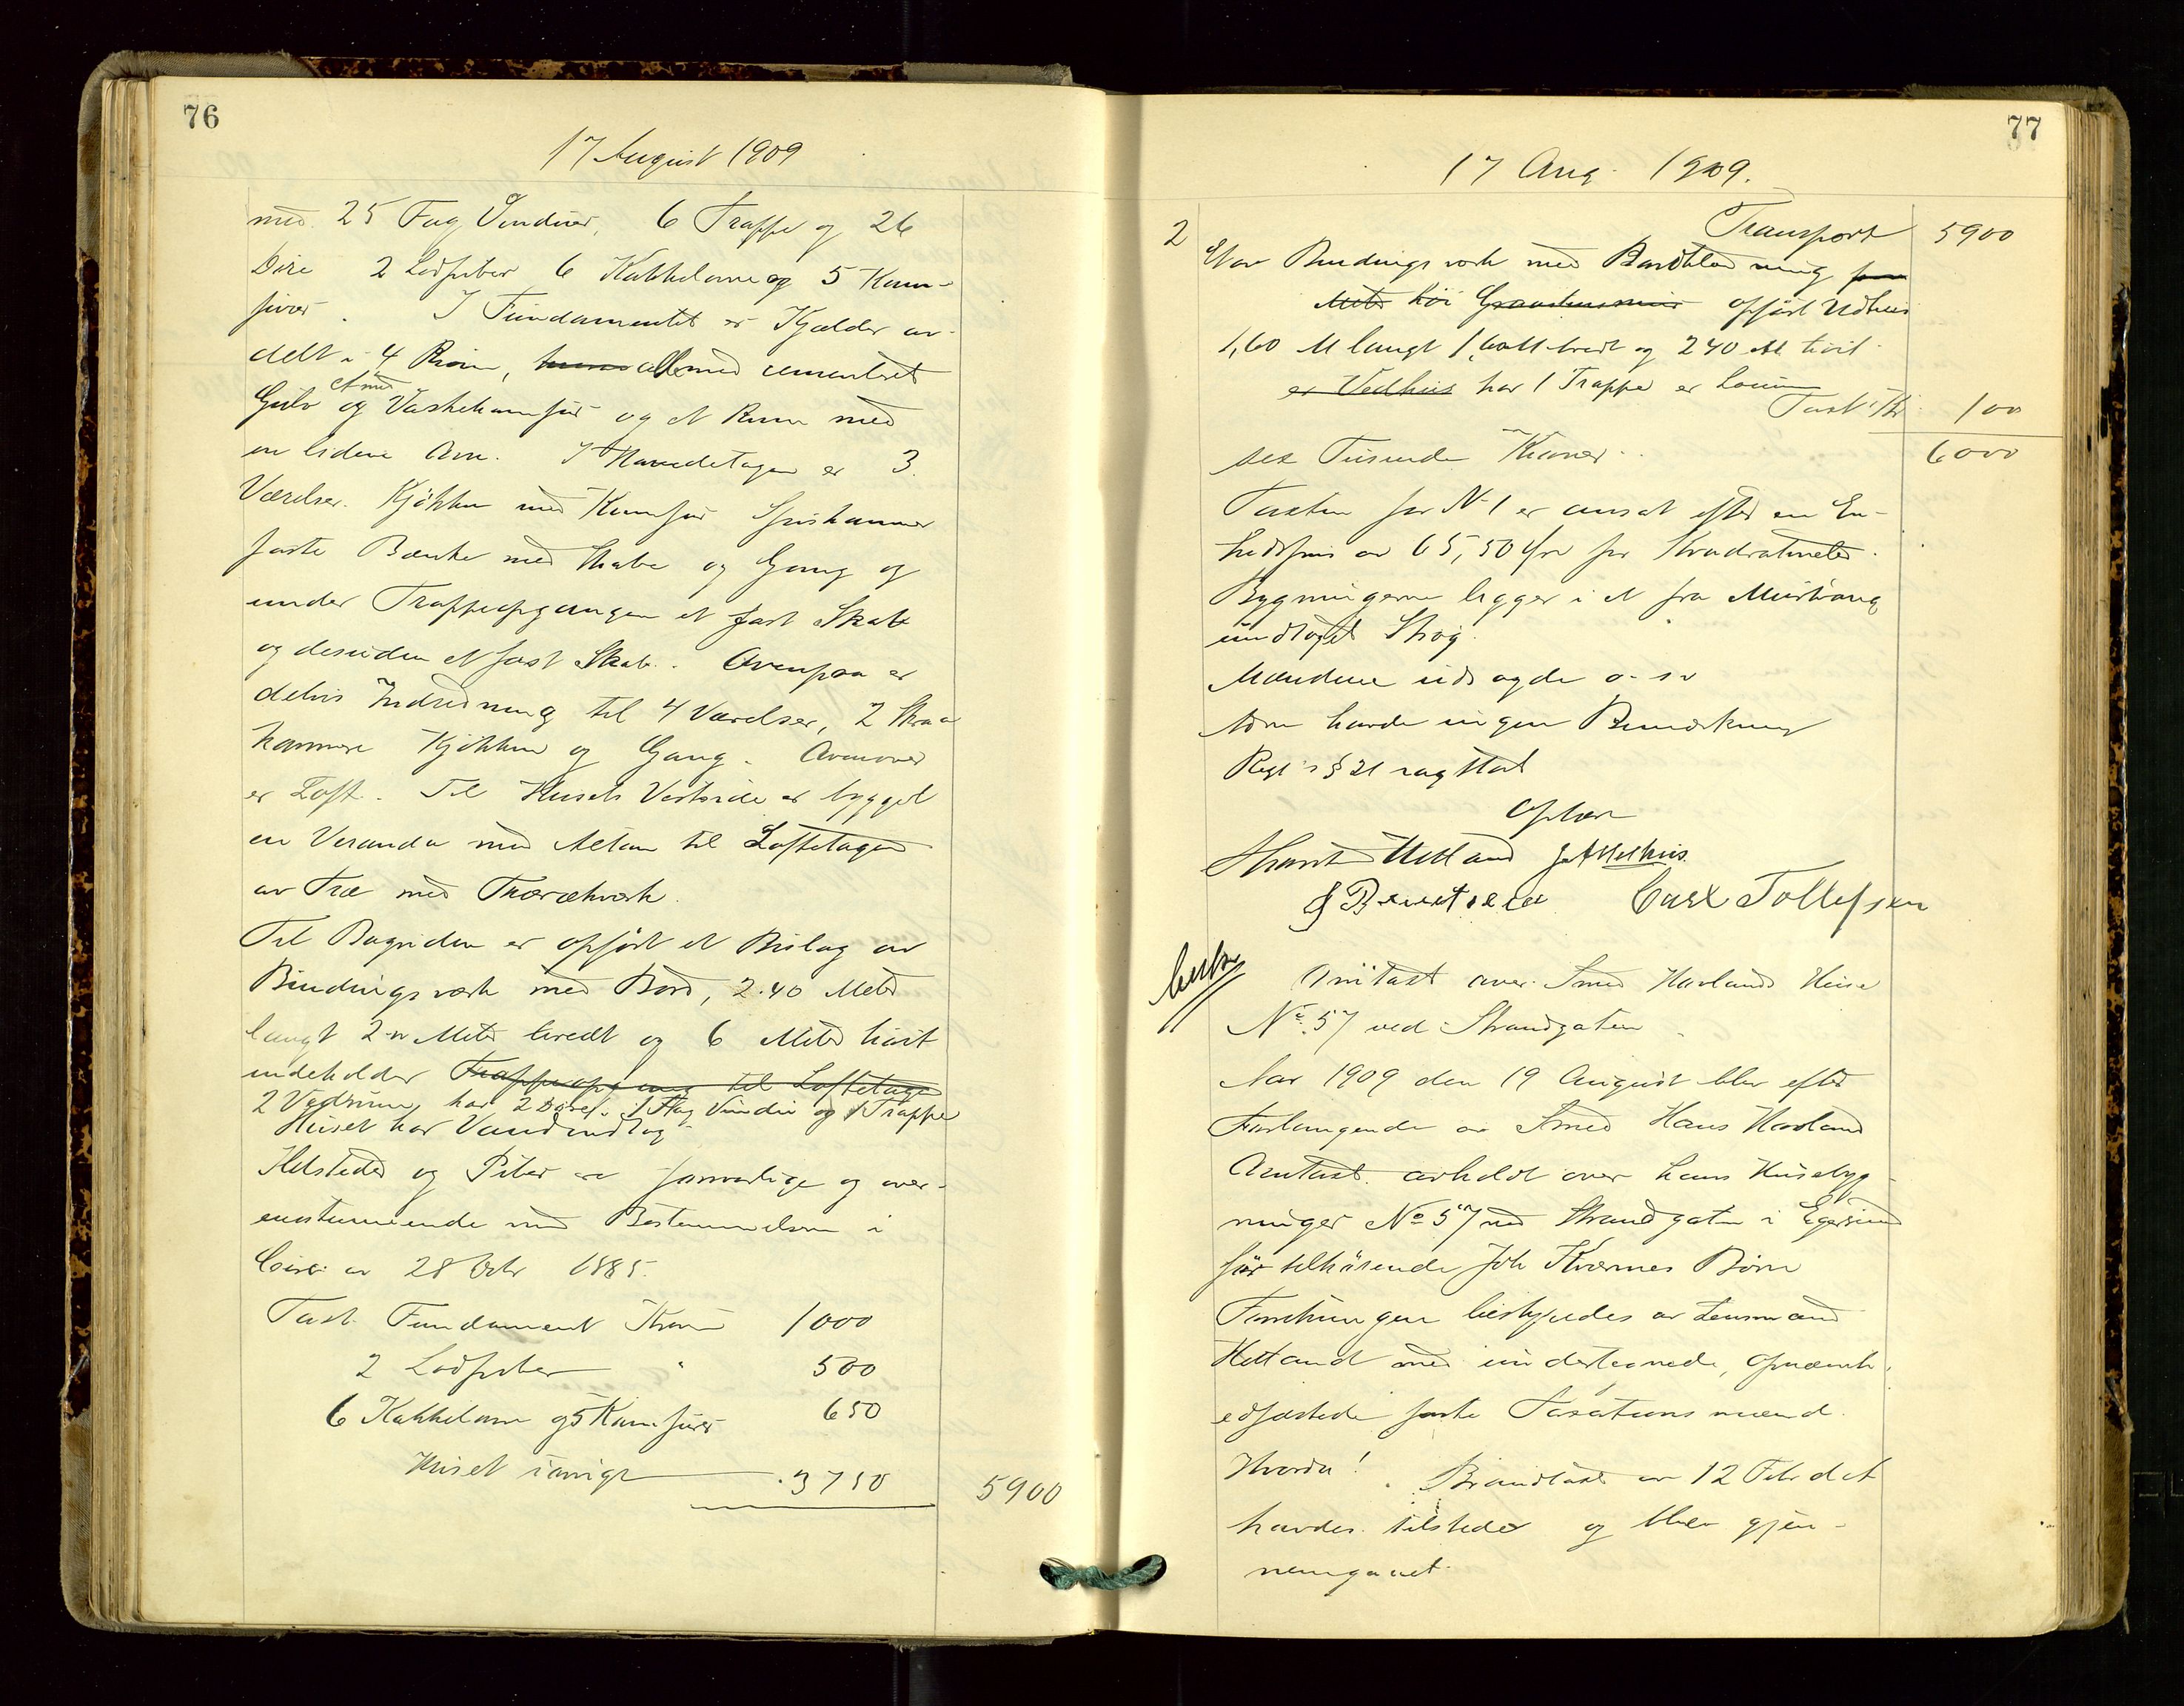 76
17 August 1909
med 25 Fag Vinduer, 6 Trapper og 26
Döre 2 Lodpiber 6 Kakkelovne og 5 Kom-
furer. I Fundamentet er Kjælder av-
delt i 4 Rum, alle med cementeret
Gulv og Vaskekomfur og et Rum med
en liden Ovn. I Hovedetagen er 3
Værelser. Kjøkken med Komfur Spiskammer
faste Bænke med Skabe og Gang og
under Trappeopgangen et fast Skab
og desuden et fast Skab. Ovenpaa er
delvis Indredning til 4 Værelser, 2 Skraa
kammere Kjøkken og Gang. Ovenover
er Loft. Til Husets Vestside er bygget
en Veranda med Altan til Loftetagen
av Træ med Trærækværk.
Til Bagsiden er opført et Bislag av
Bindingsværk med Bord, 2.40 Meter
langt 2 Meter bredt og 6 Meter høit
indeholder Trappeopgang til Loftetagen
2 Vedrum, har 2 Döre 1 Fag Vindu og 1 Trappe
Huset har Vandindlæg
Ildsteder og Piber er forsvarlige og over-
ensstemmende med Bestemmelserne i
Circ: av 28 Octr 1885.
Taxt. Fundament Kroner 1000
2 Lodpiber " 500
6 Kakkelovne og 5 Komfurer 650
Huset iøvrigt 3750
5900
77
17 Aug 1909.
Transport 5900
2 Et av Bindingsværk med Bordklædning
Meter höi Graastensmur opført Udhus
1,60 M langt 1,60 M bredt og 240 M høit
er Vedhus har 1 Trappe er
Taxt Kr 100
sex Tusinde Kroner 6000
Taxten for No 1 er ansat efter en En-
hedspris av 65,50 Øre pr Kvadratmeter.
Bygningerne ligger i et fra Murtvang
undtaget Strøg.
Mændene udsagde o. s v
havde ingen Bemærkning
Regl s § 21 iagttat
Oplæst
Hetland J. A. Melhus
Carl Tollefsen
Omtaxt over Smed Havlands Huse
No 57 ved Strandgaten
Aar 1909 den 19 August blev efter
Forlangende av Smed Hans Havland
Omtaxt avholdt over hans Husebyg-
ninger No 57 ved Strandgaten i Egersund
før tilhørende Joh Kværnes Børn
Forretningen bestyredes av Lensmand
Hetland med undertegnede, opnævnte
edfæstede faste Taxationsmænd.
Hvorda! Brandtaxt av 12 Febr d A
havdes tilstede og blev gjen-
nemgaaet